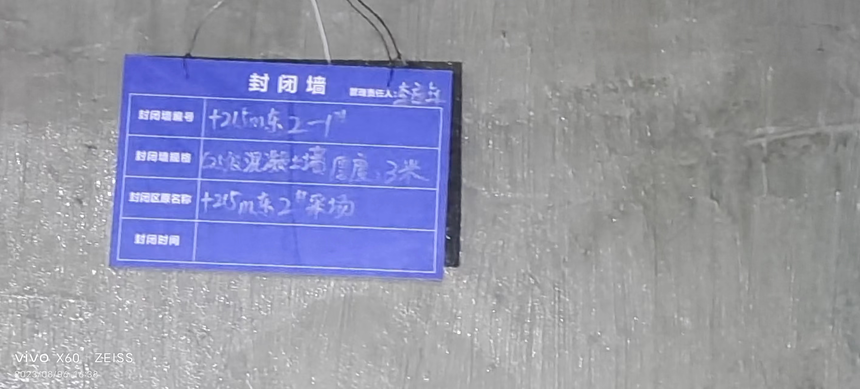 封闭墙
管理责任人:
封闭墙编号 +215m东2-1#
封闭墙规格 混凝土墙 厚度:3米
封闭区原名称 +215m东2#采场
封闭时间
vivo X60 ZEISS